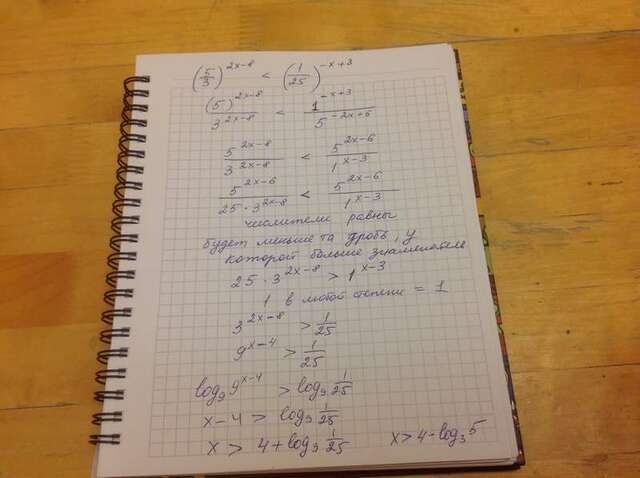 (5/3)^(2x-8) < (1/25)^(-x+3)
(5)^(2x-8) / 3^(2x-8) < 1^(-x+3) / 5^(-2x+6)
5^(2x-8) / 3^(2x-8) < 5^(2x-6) / 1^(x-3)
5^(2x-6) / 25·3^(2x-8) < 5^(2x-6) / 1^(x-3)
числители равны
будет меньше та дробь, у
которой больше знаменатель
25·3^(2x-8) > 1^(x-3)
1 в любой степени = 1
3^(2x-8) > 1/25
9^(x-4) > 1/25
log₉ 9^(x-4) > log₉ 1/25
x-4 > log₉ 1/25
x > 4 + log₉ 1/25 x > 4 - log₃ 5